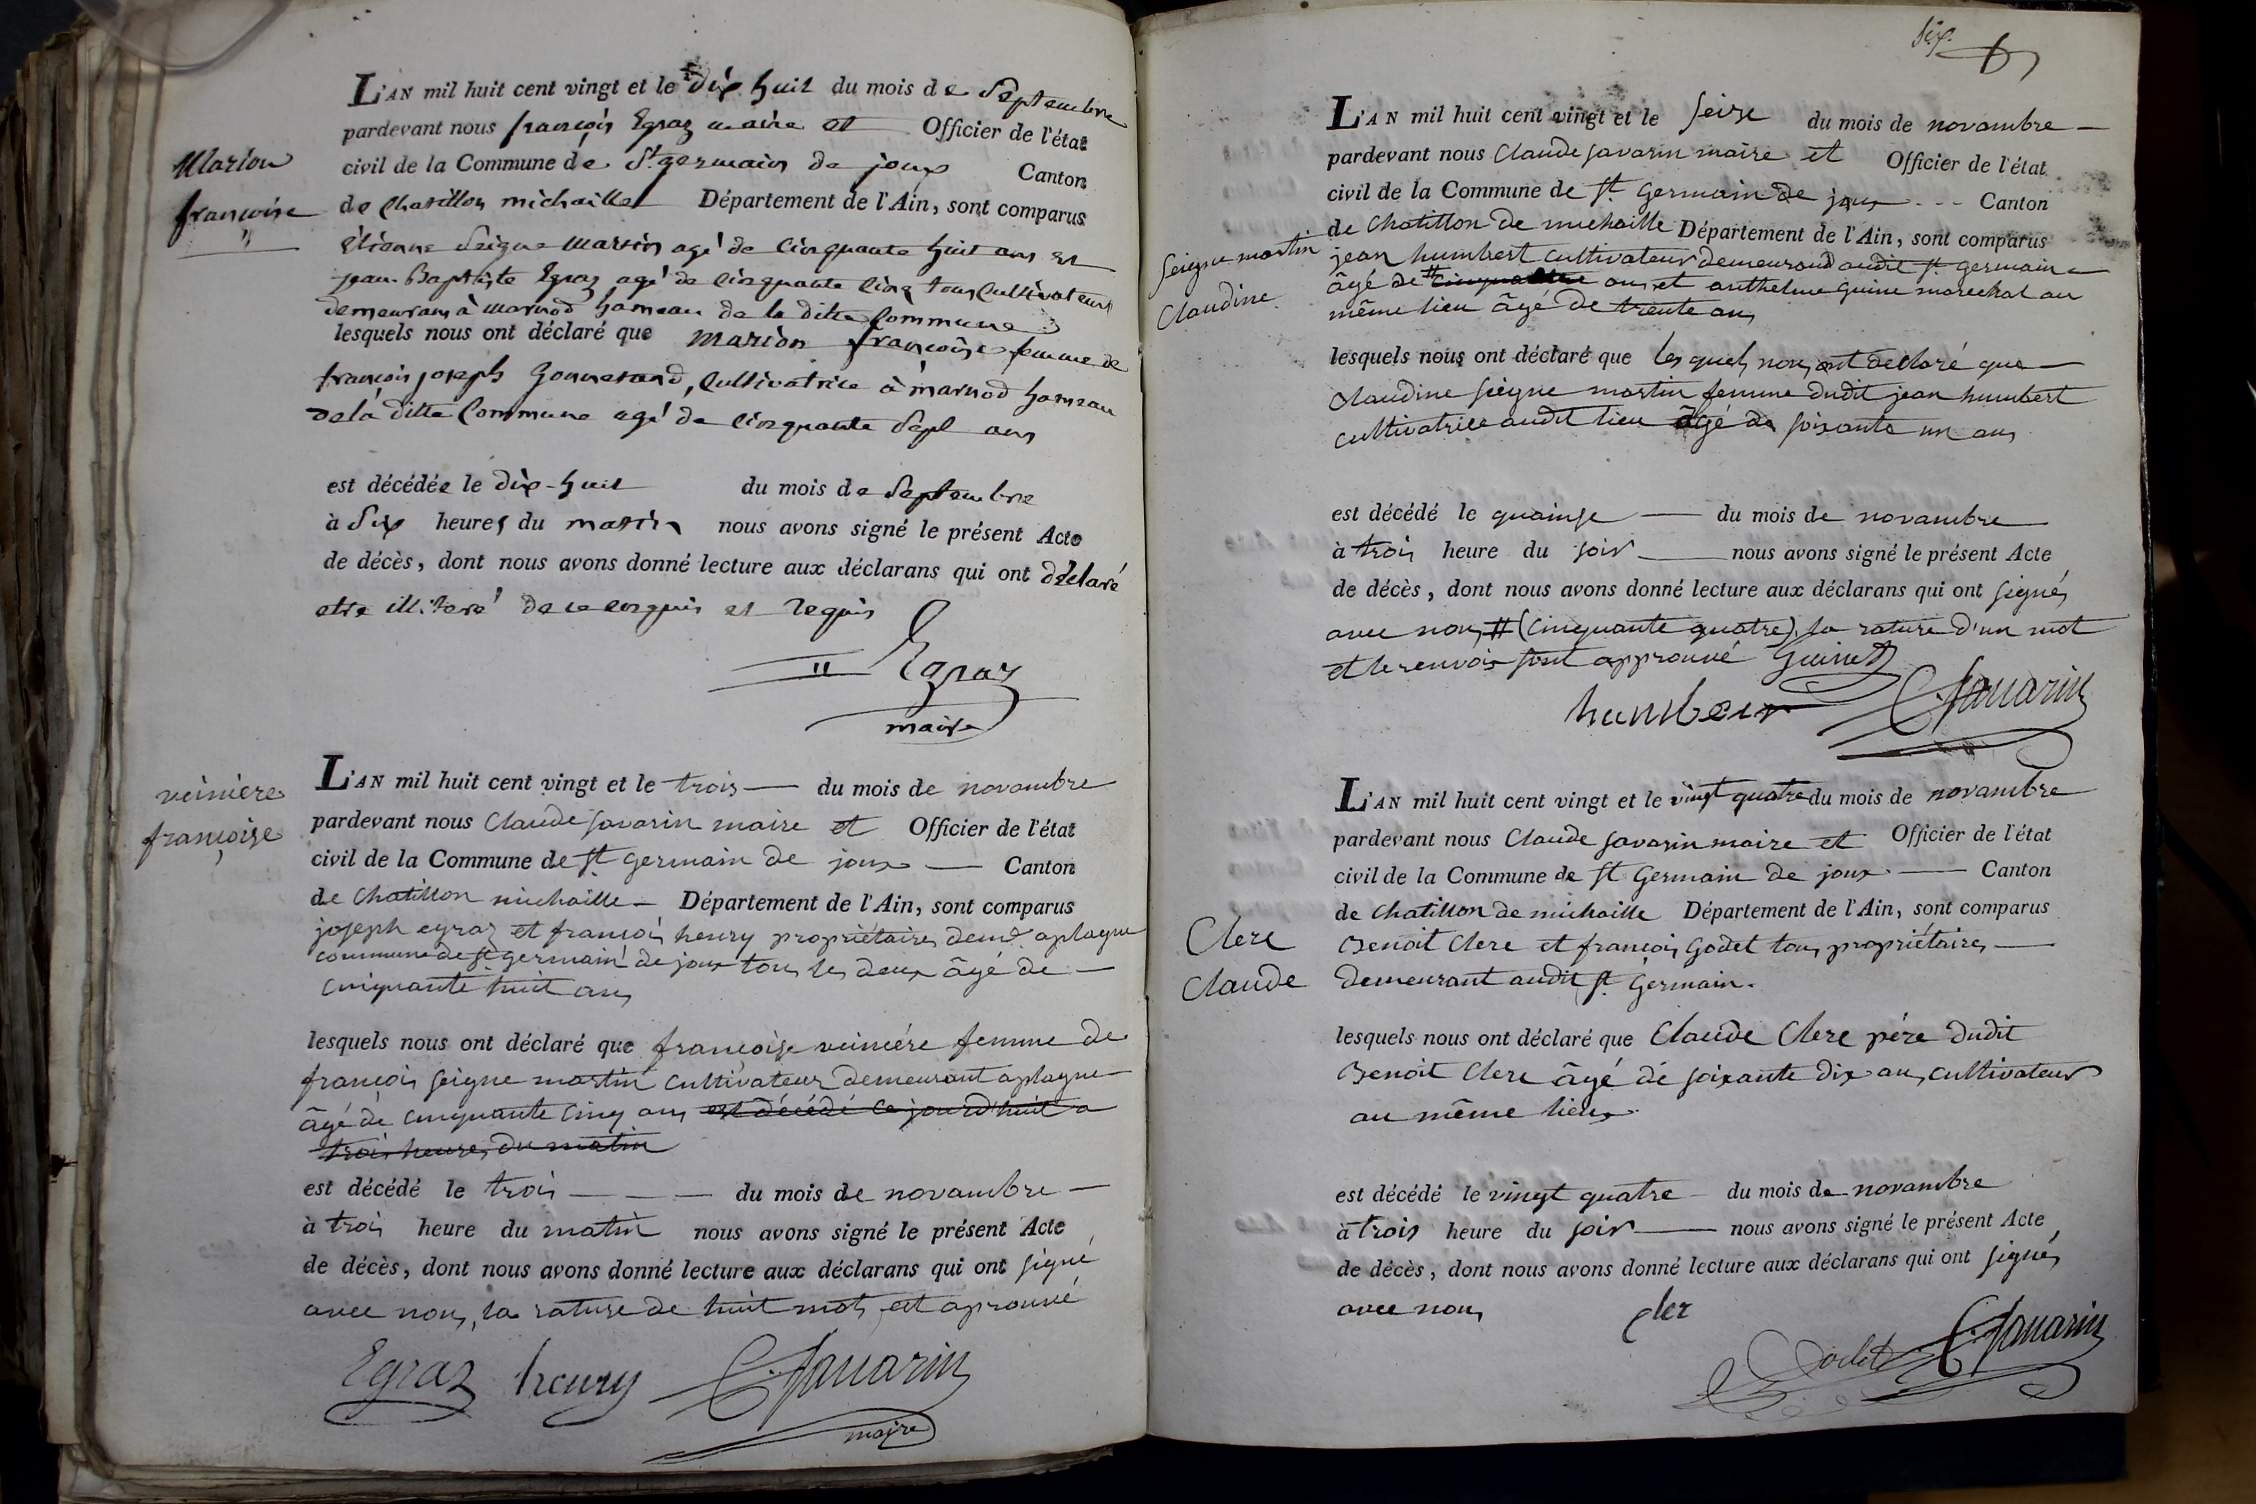 Marion
françoise
L'AN mil huit cent vingt et le dix huit du mois de Septembre
pardevant nous françois Egraz maire et Officier de l'état
civil de la Commune de St germain de joux Canton
de Chatillon michaille Département de l'Ain, sont comparus
Etienne Seigne Martin agé de Cinquante huit ans et
jean-Baptiste Egraz agé de Cinquante Cinq tous Cultivateurs
demeurans à marnod hameau de la ditte Commune
lesquels nous ont déclaré que marion françoise femme de
françois joseph Gonnerand, Cultivatrice à marnod hameau
dela ditte Commune agé de Cinquante Sept ans
est décédée le dix-huit du mois de Septembre
à Six heures du matin nous avons signé le présent Acte
de décès, dont nous avons donné lecture aux déclarans qui ont déclaré
etre illiteré de ce enquis et requis
Egraz
maire
veiniere
françoise
L'AN mil huit cent vingt et le trois du mois de novambre
pardevant nous Claude Savarin maire et Officier de l'état
civil de la Commune de St germain de joux Canton
de Chatillon michaille Département de l'Ain, sont comparus
joseph egraz et francois henry propriétaires demt. aplagne
commune de St germain de joux tous les deux âgé de
cinquante huit ans
lesquels nous ont déclaré que françoise veiniére femme de
françois seigne martin Cultivateur demeurant aplagne
âgé de cinquante cinq ans est décédé ce jourd'huit a
trois heures du matin
est décédé le trois du mois de novambre
à trois heure du matin nous avons signé le présent Acte
de décès, dont nous avons donné lecture aux déclarans qui ont signé
avec nous, la rature de huit mots est aprouvé
Egraz henry C. Savarin
maire
Six. 6
Seigne martin
Claudine
L'AN mil huit cent vingt et le Seise du mois de novambre
pardevant nous Claude Savarin maire et Officier de l'état
civil de la Commune de St Germain de joux Canton
de Chatillon de michaille Département de l'Ain, sont comparus
jean humbert cultivateur demeurand audit St germain
âgé de # cinquante ans et anthelme guine marechal au
même lieu âgé de trente ans
lesquels nous ont déclaré que les quels nous ont declaré que
Claudine seigne martin femme dudit jean humbert
cultivatrice audit lieu âgé de soixante un ans
est décédé le quainse du mois de novambre
à trois heure du soir nous avons signé le présent Acte
de décès, dont nous avons donné lecture aux déclarans qui ont signés
avec nous # (cinquante quatre). la rature d'un mot
et le renvois sont approuvé Guinet
humbeur C. Savarin
Clerc
Claude
L'AN mil huit cent vingt et le vingt quatre du mois de novambre
pardevant nous Claude Savarin maire et Officier de l'état
civil de la Commune de St Germain de joux Canton
de Chatillon de michaille Département de l'Ain, sont comparus
Benoit Clerc et françois Godet tous propriétaires
demeurant audit St Germain.
lesquels nous ont déclaré que Claude Clerc père dudit
Benoit Clerc âgé de soixante dix ans, cultivateur
au même lieux.
est décédé le vingt quatre du mois de novambre
à trois heure du soir nous avons signé le présent Acte
de décès, dont nous avons donné lecture aux déclarans qui ont signés
avec nous cler
Godet C. Savarin